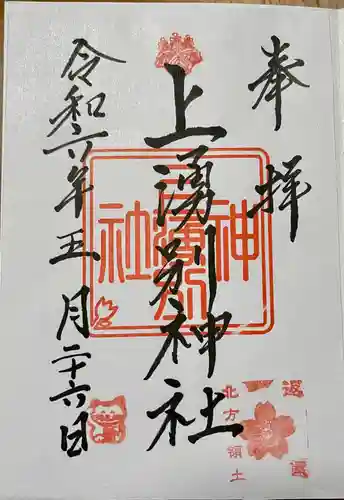 奉拝
上湧別神社
令和六年五月二十六日
上湧別神社
返還
北方領土